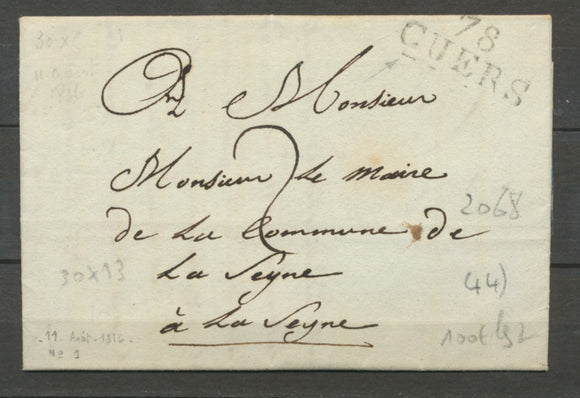 78
CUERS
30x13
11 Août
1816
A Monsieur
2
Monsieur le maire
de la Commune de
La Seyne
à la Seyne
2068
30x13
44)
11 Août-1816-
No 1
100€